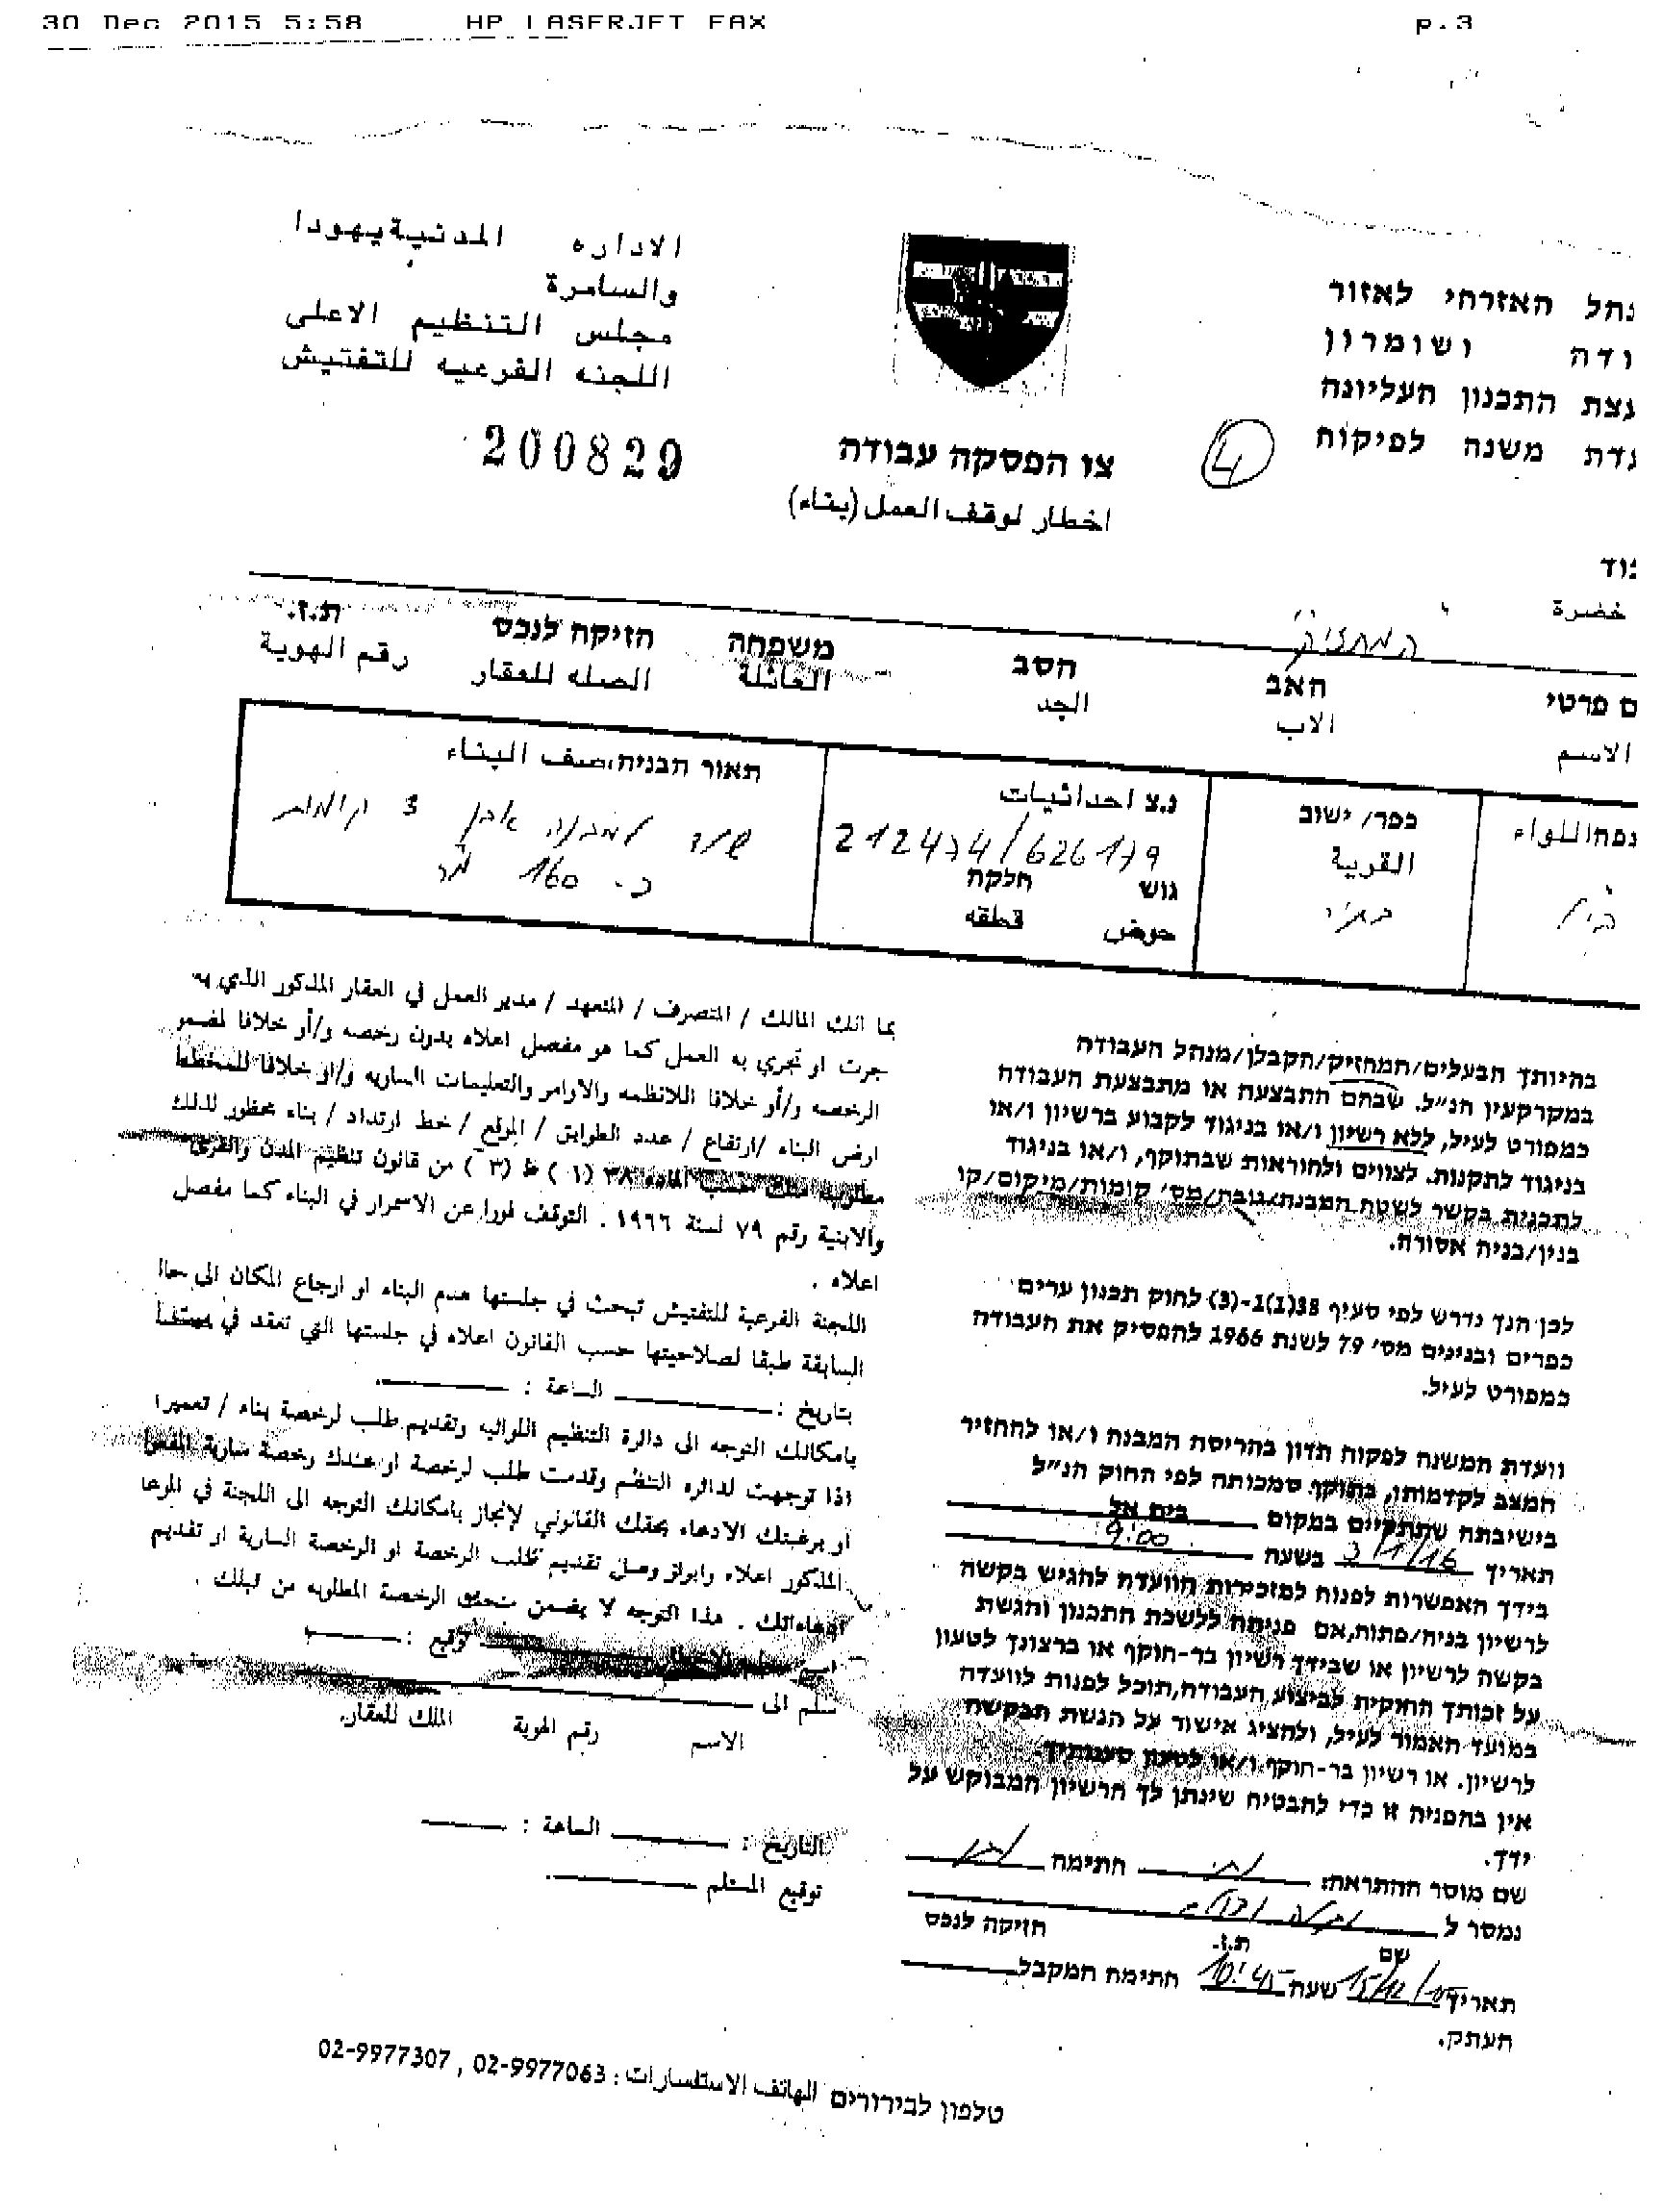 30 Dec 2015 5:58 HP LASERJET FAX p.3
נהל האזרחי לאזור
ודה ושומרון
עצת התכנון העליונה
עדת משנה לפיקוח
الاداره المدنية يهودا
والسامرة
مجلس التنظيم الاعلى
اللجنه الفرعيه للتفتيش
200829
4
צו הפסקה עבודה
اخطار لوقف العمل (بناء)
בוד
خضرة
המחזיק
ם פרטי האב הסב משפחה הזיקה לנכס ת.ז.
الاسم الاب الجد العائلة الصله للعقار رقم الهوية
נפה اللواء
כפר/ ישוב
القرية
נ.צ احداثيات
212474/626179
גוש חלקה
حوض قطعه
תאור הבניה، صنف البناء
3 קומות
כ- 160 מ"ר
בהיותך הבעלים/המחזיק/הקבלן/מנהל העבודה
במקרקעין הנ"ל. שבהם התבצעה או מתבצעת העבודה
כמפורט לעיל, ללא רשיון ו/או בניגוד לקבוע ברשיון ו/או
בניגוד לתקנות. לצווים ולהוראות שבתוקף, ו/או בניגוד
לתכנית בקשר לשטח המבנה/גובה/מס' קומות/מיקום/קו
בנין/בניה אסורה.
לכן הנך נדרש לפי סעיף 38(1)1-(3) לחוק תכנון ערים
כפרים ובנינים מס' 79 לשנת 1966 להפסיק את העבודה
כמפורט לעיל.
וועדת המשנה לפקוח תדון בהריסת המבנה ו/או להחזיר
המצב לקדמותו, בתוקף סמכותה לפי החוק הנ"ל
בישיבתה שתתקיים במקום בית אל
תאריך 3/1/16 בשעה 9:00
בידך האפשרות לפנות למזכירות הוועדה להגיש בקשה
לרשיון בניה/פתוח, אם פניתה ללשכת התכנון והגשת
בקשה לרשיון או שבידך רשיון בר-תוקף או ברצונך לטעון
על זכותך החוקית לביצוע העבודה, תוכל לפנות לוועדה
במועד האמור לעיל, ולהציג אישור על הגשת הבקשה
לרשיון. או רשיון בר-תוקף ו/או לטעון טענותיך.
אין בהפניה זו כדי להבטיח שינתן לך הרשיון המבוקש על
ידך.
שם מוסר ההתראה: חתימה
נמסר ל
שם ת.ז. הזיקה לנכס
תאריך 15/12/ שעה 10:45 חתימת המקבל
העתק.
بما انك المالك / المتصرف / المتعهد / مدير العمل في العقار المذكور الذي به
جرت او تجري به العمل كما هو مفصل اعلاه بدون رخصه و/أو خلافا لمضمو
الرخصه و/أو خلافا اللانظمه والاوامر والتعليمات الساريه و/او خلافا للمخطط
ارض البناء /ارتفاع / عدد الطوابق / الموقع / خط ارتداد / بناء محظور لذلك
مطلوب منك حسب الماده ٣٨ (١) ط (٣) من قانون تنظيم المدن والقرى
والابنية رقم ٧٩ لسنة ١٩٦٦ . التوقف فورا عن الاسمرار في البناء كما مفصل
اعلاه .
اللجنة الفرعية للتفتيش تبحث في جلستها هدم البناء او ارجاع المكان الى حال
السابقة طبقا لصلاحيتها حسب القانون اعلاه في جلستها التي تعقد في
بتاريخ : الساعة :
بامكانك التوجه الى دائرة التنظيم اللوائيه وتقديم طلب لرخصة بناء / تعميرا
اذا توجهت لدائره التنظم وقدمت طلب لرخصة او عندك رخصة سارية المفعول
أو برغبتك الادهاء بحقك القانوني لإنجاز بامكانك التوجه الى اللجنة في الموعا
المذكور اعلاه وابراز وصل تقديم طلب الرخصة او الرخصة السارية او تقديم
ادعاءاتك . هذا التوجه لا يضمن منحك الرخصة المطلوبه من قبلك .
توقيع :
سلم الى
الاسم رقم الهوية الملك للعقار.
التاريخ : الساعة :
توقيع المستلم
טלפון לבירורים الهاتف الاستفسارات : 02-9977063 , 02-9977307